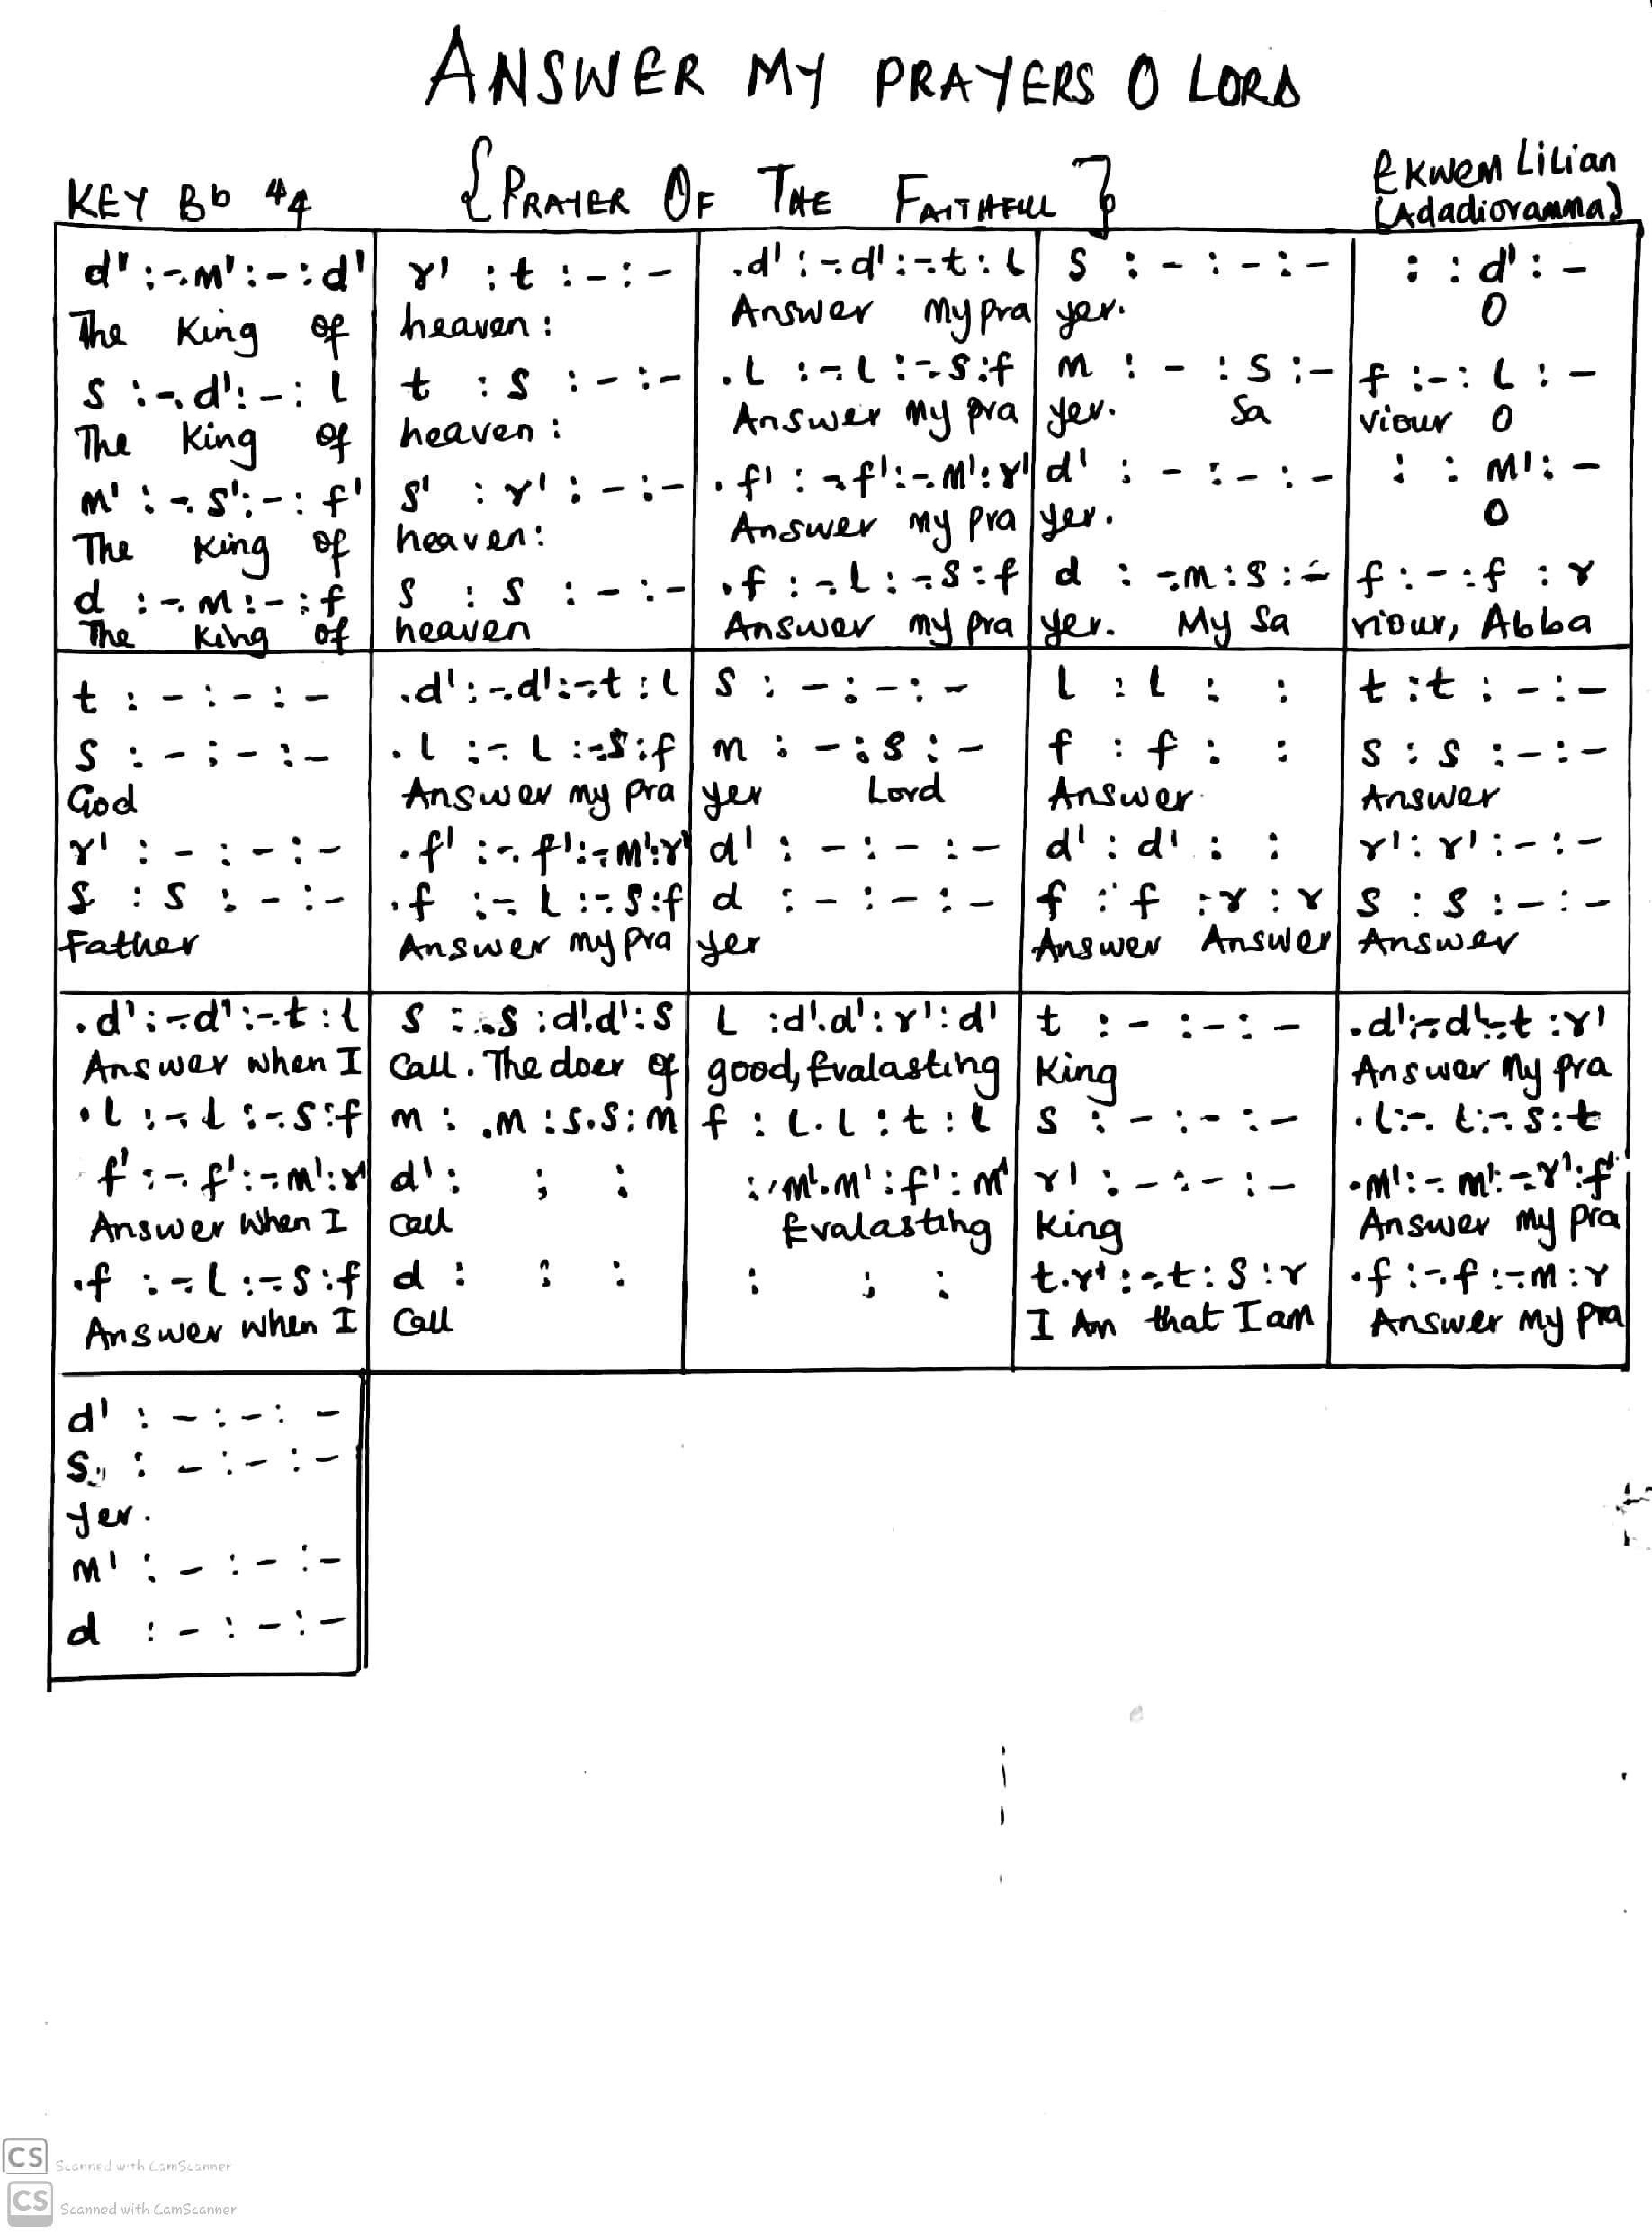 ANSWER MY PRAYERS O LORD
KEY Bb 4/4 {PRAYER OF THE FAITHFULL} Ekwem Lilian
(Adadioramma)
d" :-.m' :- : d' | r' : t : - : - | .d' :-.d' :-.t : l | s : - : - : - | : : d' : -
The King of | heaven: | Answer my pra | yer. | O
s :-.d' :- : l | t : s : - : - | .l :-.l :-.s : f | m : - : s : - | f : - : l : -
The King of | heaven: | Answer my pra | yer. Sa | viour O
m' :-.s' :- : f' | s' : r' : - : - | .f' :-.f' :-.m' : r' | d' : - : - : - | : : m' : -
The King of | heaven: | Answer my pra | yer. | O
d :-.m :- : f | s : s : - : - | .f :-.l :-.s : f | d :-.m : s : - | f : - : f : r
The King of | heaven | Answer my pra | yer. My Sa | viour, Abba
t : - : - : - | .d' :-.d' :-.t : l | s : - : - : - | l : l : : | t : t : - : -
s : - : - : - | .l :-.l :-.s : f | m : - : s : - | f : f : : | s : s : - : -
God | Answer my pra | yer Lord | Answer | Answer
r' : - : - : - | .f' :-.f' :-.m' : r' | d' : - : - : - | d' : d' : : | r' : r' : - : -
s : s : - : - | .f :-.l :-.s : f | d : - : - : - | f : f : r : r | s : s : - : -
Father | Answer my pra | yer | Answer Answer | Answer
.d' :-.d' :-.t : l | s : .s : d'.d' : s | l : d'.d' : r' : d' | t : - : - : - | .d' :-.d' :-.t : r'
Answer when I | Call. The doer of | good, Evalasting | King | Answer My pra
.l :-.l :-.s : f | m : .m : s.s : m | f : l.l : t : l | s : - : - : - | .l :-.l :-.s : t
f' :-.f' :-.m' : r' | d' : : : | : m'.m' : f' : m' | r' : - : - : - | .m' :-.m' :-.r' : f'
Answer When I | Call | Evalasting | King | Answer my pra
.f :-.l :-.s : f | d : : : | : : : | t.r' :-.t : s : r | .f :-.f :-.m : r
Answer when I | Call | I Am that I am | Answer my pra
d' : - : - : -
s : - : - : -
yer.
m' : - : - : -
d : - : - : -
CS Scanned with CamScanner
CS Scanned with CamScanner